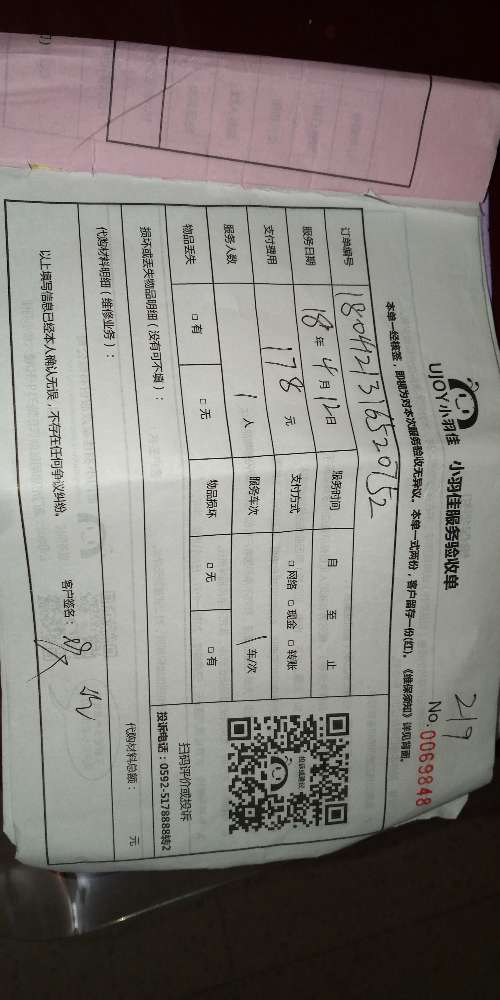 219
UJOY小羽佳 小羽佳服务验收单 No.0069848
本单一经核签，即视为对本次服务验收无异议。本单一式两份，客户留存一份(红)。《维保须知》详见背面。
订单编号 180421316520752
服务日期 18年4月12日 服务时间 自 至 止
支付费用 178元 支付方式 □网络 □现金 □转账
服务人数 1人 服务车次 1车/次
物品丢失 □有 □无 物品损坏 □无 □有
损坏或丢失物品明细（没有可不填）：
扫码评价或投诉
投诉电话：0592-5178888转2
投诉或建议
代购材料明细（维修业务）：
代购材料总额： 元
以上填写信息已经本人确认无误，不存在任何争议纠纷。 客户签名：